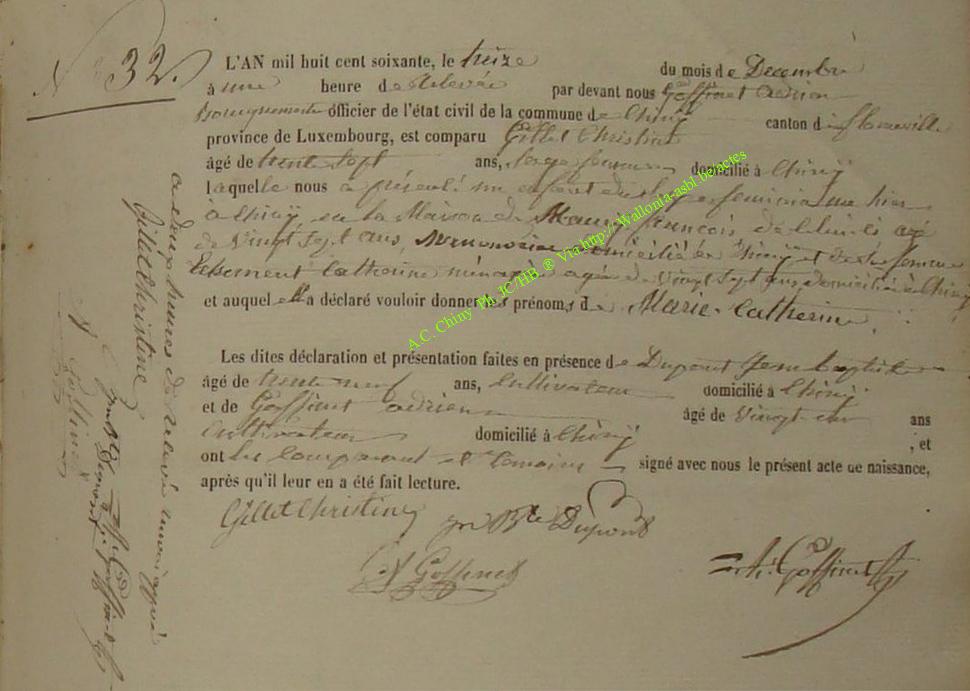 N° 32.
L'AN mil huit cent soixante, le treize du mois de Decembre
à une heure de relevée par devant nous Goffinet Adrien
Bourguemestre officier de l'état civil de la commune de Chiny canton de Florenville
province de Luxembourg, est comparu Gillet Christine
âgé de trente sept ans, Sage femme domicilié à Chiny
laquelle nous a présenté un enfant du sexe feminin né hier
à Chiny en la Maison de François agé
de Vingt sept ans, domicilié à Chiny et de sa femme
Catherine ménagère agée de Vingt sept ans domiciliée à Chiny
et auquel elle a déclaré vouloir donner les prénoms de Marie-Catherine.
Les dites déclaration et présentation faites en présence de Dupont Jean Baptiste
âgé de trente neuf ans, Cultivateur domicilié à Chiny
et de Goffinet Adrien âgé de Vingt ans
Cultivateur domicilié à Chiny ; et
ont les Comparant et temoins signé avec nous le présent acte de naissance,
après qu'il leur en a été fait lecture.
Gillet Christine
Jn Bte Dupont
A Goffinet
A. Goffinet
a deux heures de relevée approuvé
Gillet Christine
Jn Bte Dupont
A. Goffinet
A Goffinet
A.C. Chiny Ph. JC/HB ® Via http://Wallonia-asbl.be/actes